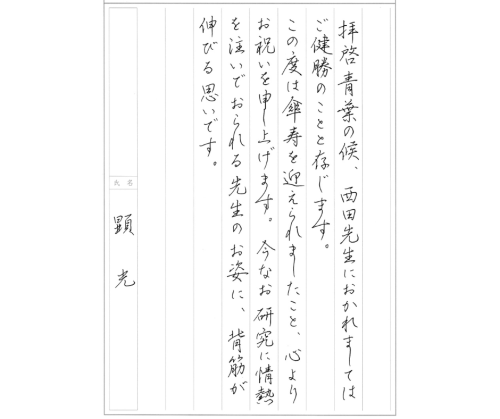 拝啓 青葉の候、西田先生におかれましては
ご健勝のことと存じます。
この度は傘寿を迎えられましたこと、心より
お祝いを申し上げます。今なお研究に情熱
を注いでおられる先生のお姿に、背筋が
伸びる思いです。
氏名
顕光